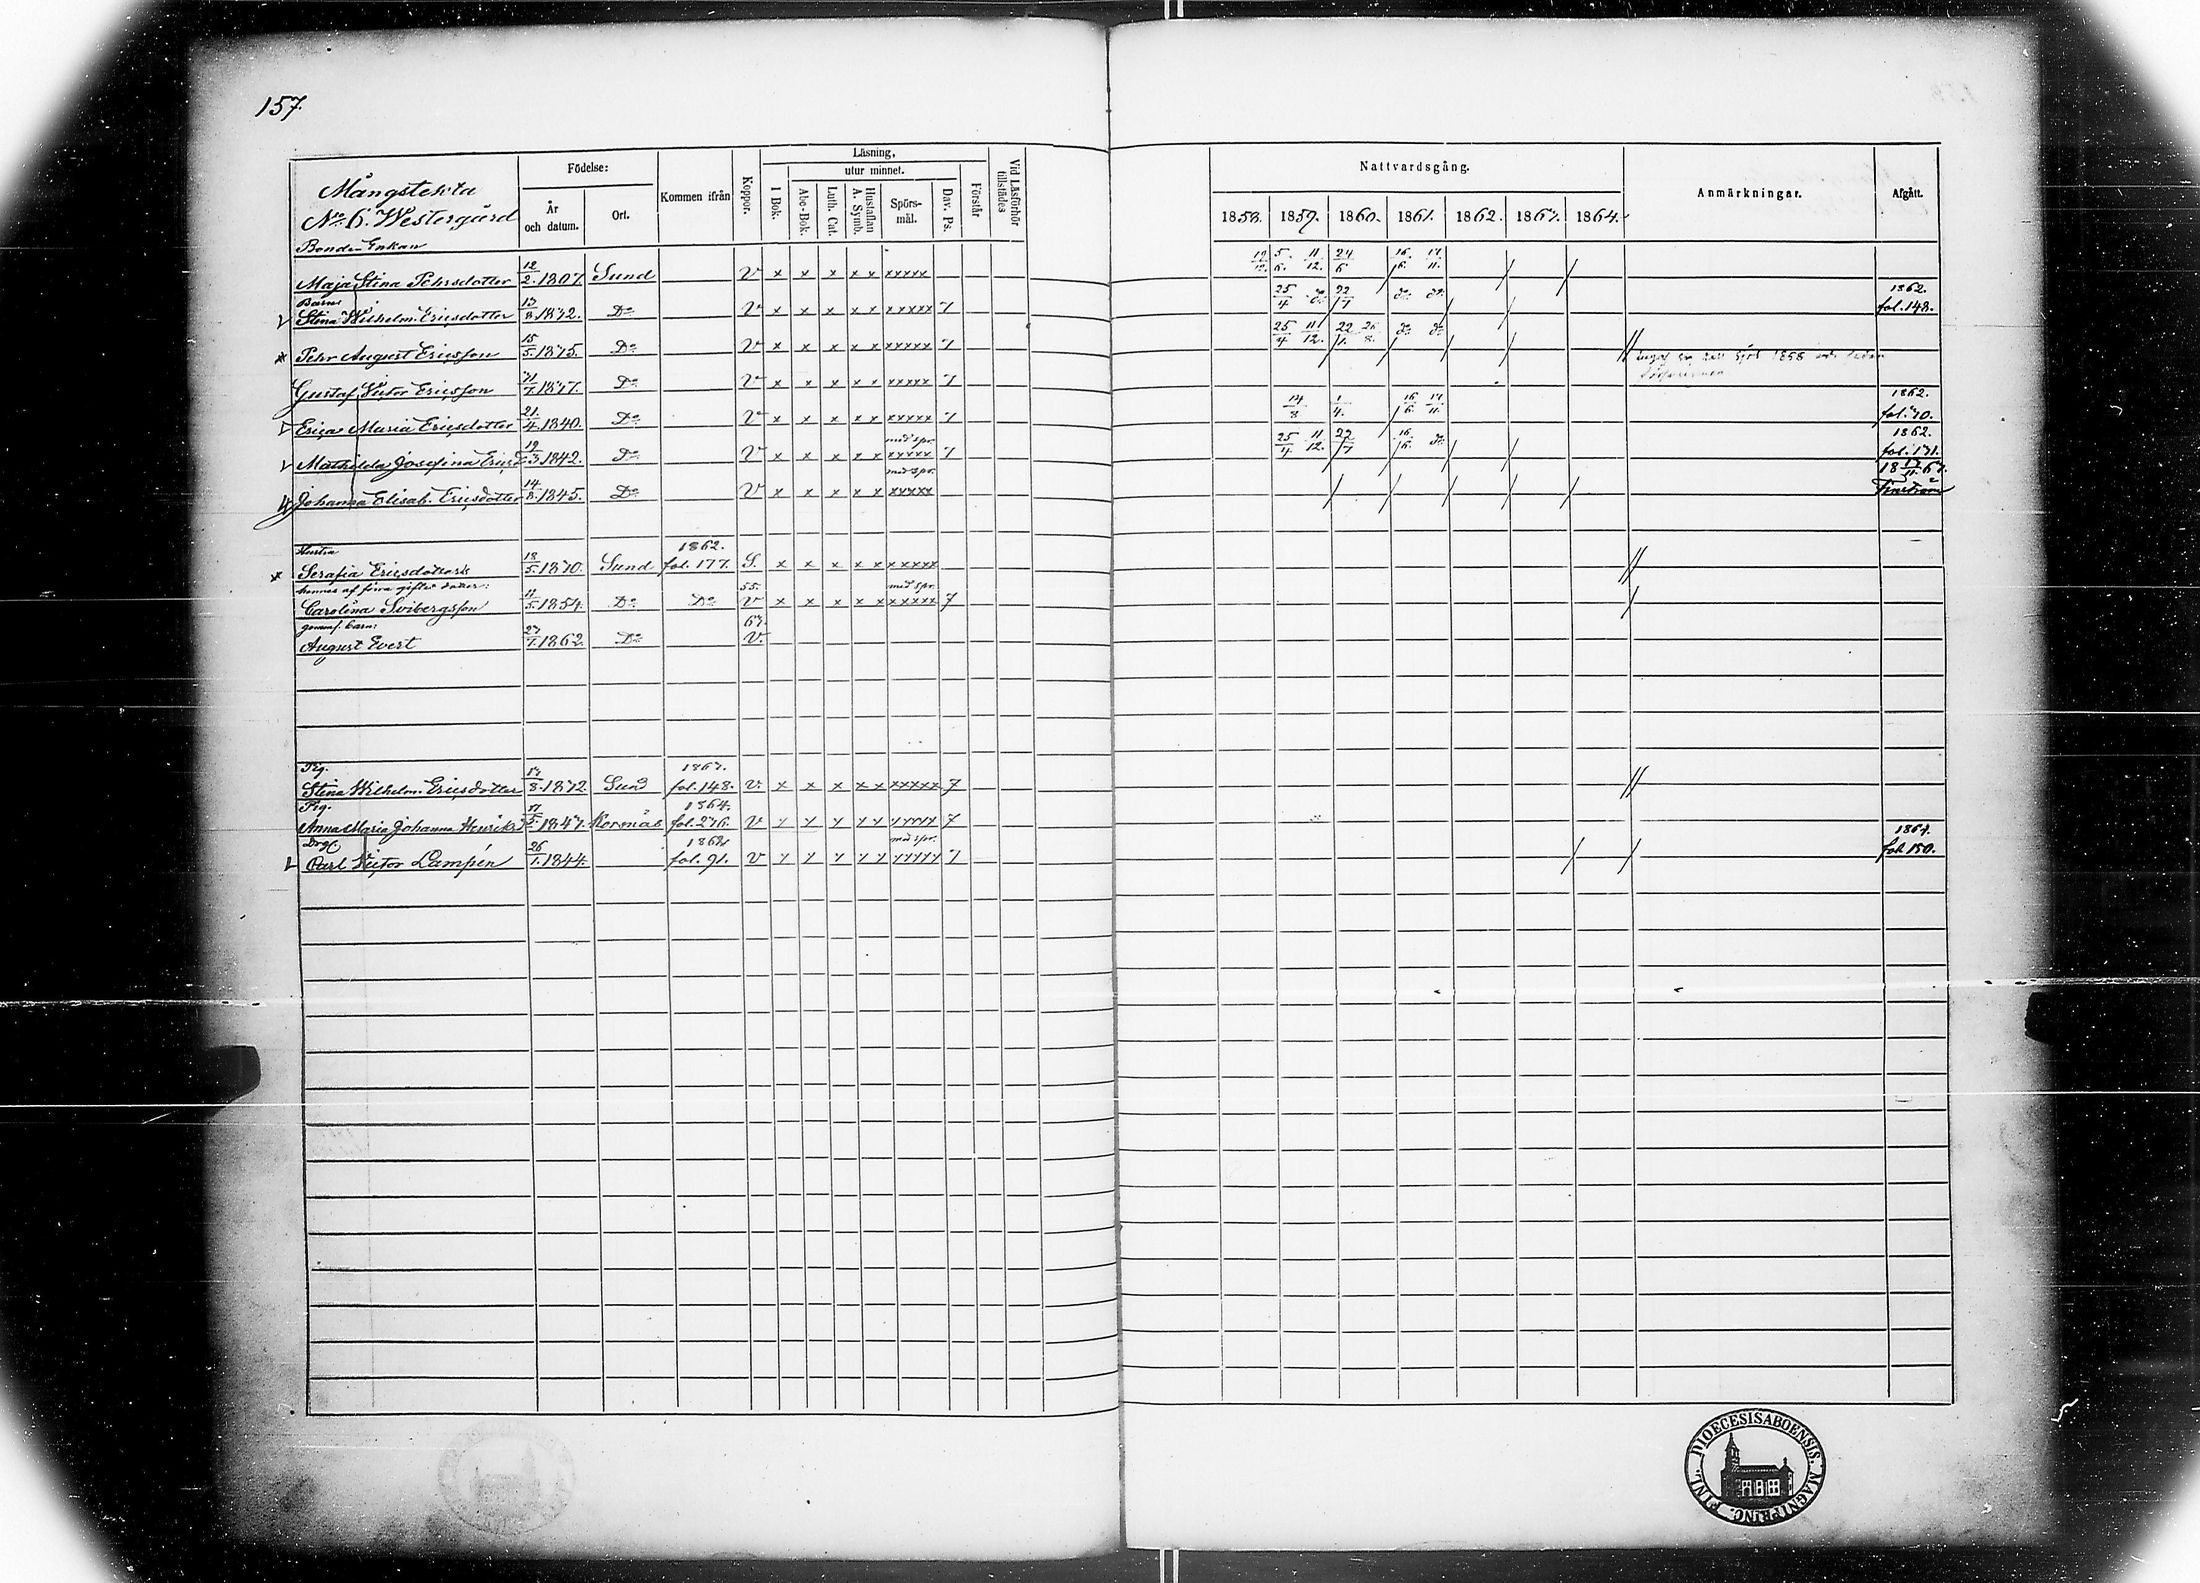 157.
Mångstekta
No. 6. Westergård
Födelse:
År och datum.
Ort.
Kommen ifrån
Koppor.
Läsning,
utur minnet.
I Bok.
Abc-Bok.
Luth. Cat.
Hustaflan A. Symb.
Spörs-mål.
Dav. Ps.
Förstår
Vid Läsförhör tillstädes
Nattvardsgång.
1858. 1859. 1860. 1861. 1862. 1863. 1864.
Anmärkningar.
Afgått.
Bonde-Enkan
Maja Stina Pehrsdotter 12/2. 1807. Sund V x x x x x xxxxx 5/6. 11/12. 24/6 16/6. 17/11.
Barn: 1862.
Stina Wilhelm. Ericsdotter 13/8. 1832. Do V x x x x x xxxxx 7 25/4 do 22/7 do do fol. 148.
Pehr August Ericsson 15/5. 1835. Do V x x x x x xxxxx 7 25/4 11/12. 22/7. 26/8. do do
Gustaf Victor Ericsson 1837. Do V x x x x x xxxxx 7
1862.
Erica Maria Ericsdotter 21/4. 1840. Do V x x x x x xxxxx 7 14/8 1/4. 16/6 17/11. fol. 70.
med spr. 1862.
Mathilda Josefina Ericsd. 19/3. 1842. Do V x x x x x xxxxx 7 25/4 11/12. 22/7 16/6. do fol. 131.
med spr.
Johanna Elisab. Ericsdotter 14/8. 1845. Do V x x x x x xxxxx Finström
Hustru 1862.
Serafia Ericsdotter 18/5. 1830. Sund fol. 177. S. x x x x x xxxxx
hennes af förra giftet dotter: 55. med spr.
Carolina Svibergsson 11/5. 1854. Do Do V x x x x x xxxxx 7
gemens. barn: 63.
August Evert 27/1. 1862. Do V.
Pig. 1863.
Stina Wilhelm. Ericsdotter 13/8. 1832 Sund fol. 148. V. x x x x x xxxxx 7
Pig. 1864.
Anna Maria Johanna Henriksd. 1847. fol. 276. V 7
Drg. med spr. 1864.
Carl Victor Lampén 26/1. 1844 fol. 91. V 7 fol. 150.
FINL. DIOECESIS ABOENSIS. MAGNI PRINC.